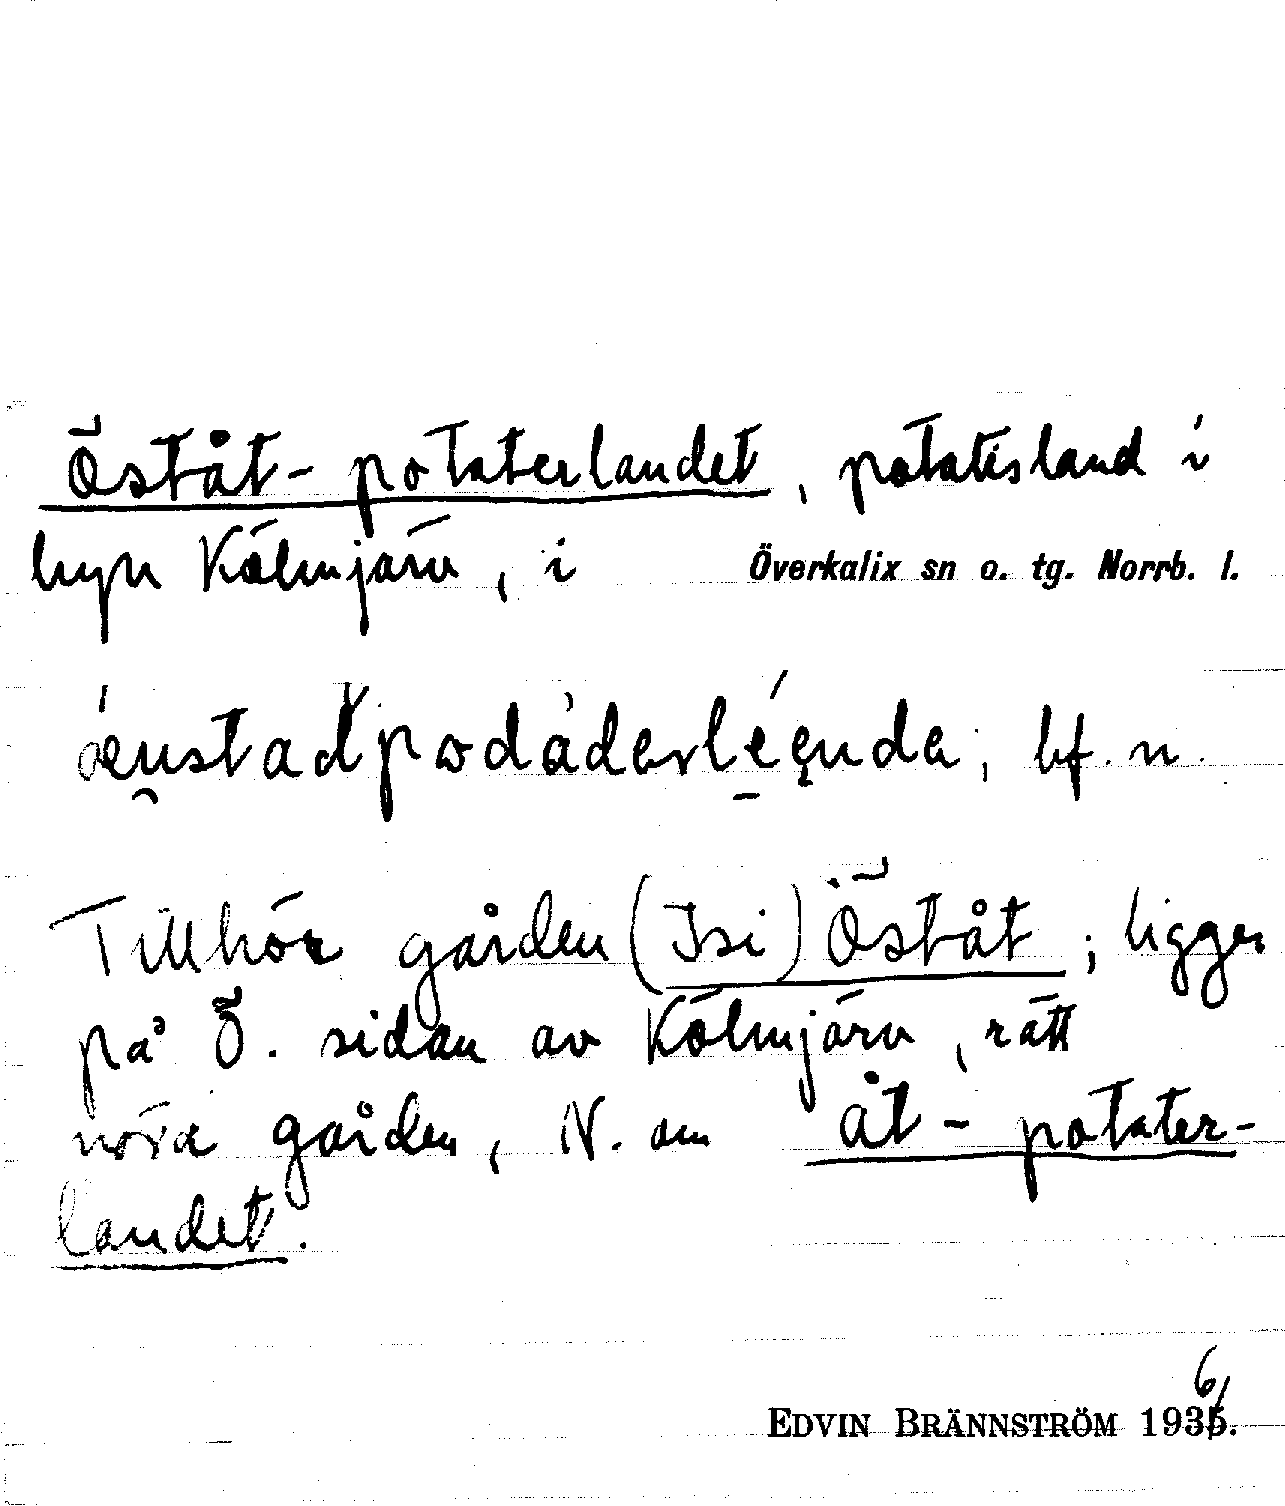 Öståt-potaterlandet, potatisland i
byn Kölmjärv, i Överkalix sn o. tg. Norrb. l.
bf. n.
Tillhör gården (Isi) Öståt; ligger
på Ö. sidan av Kölmjärv, rätt
nära gården, N. om åt-potater-
landet.
6/
EDVIN BRÄNNSTRÖM 1935.